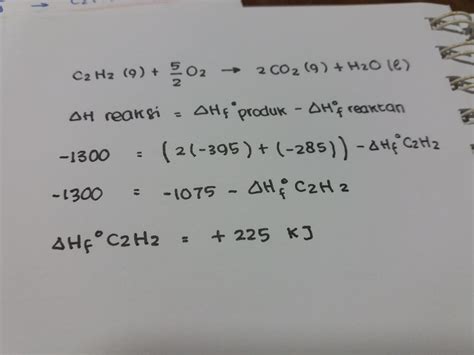 C2H2 (g) + 5/2 O2 → 2 CO2 (g) + H2O (l)
ΔH reaksi = ΔHf° produk - ΔHf° reaktan
-1300 = (2(-395) + (-285)) - ΔHf° C2H2
-1300 = -1075 - ΔHf° C2H2
ΔHf° C2H2 = + 225 KJ